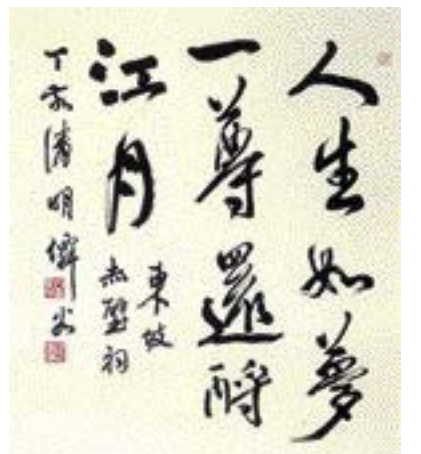 人生如夢
一尊還酹
江月
東坡
赤壁詞
丁亥清明